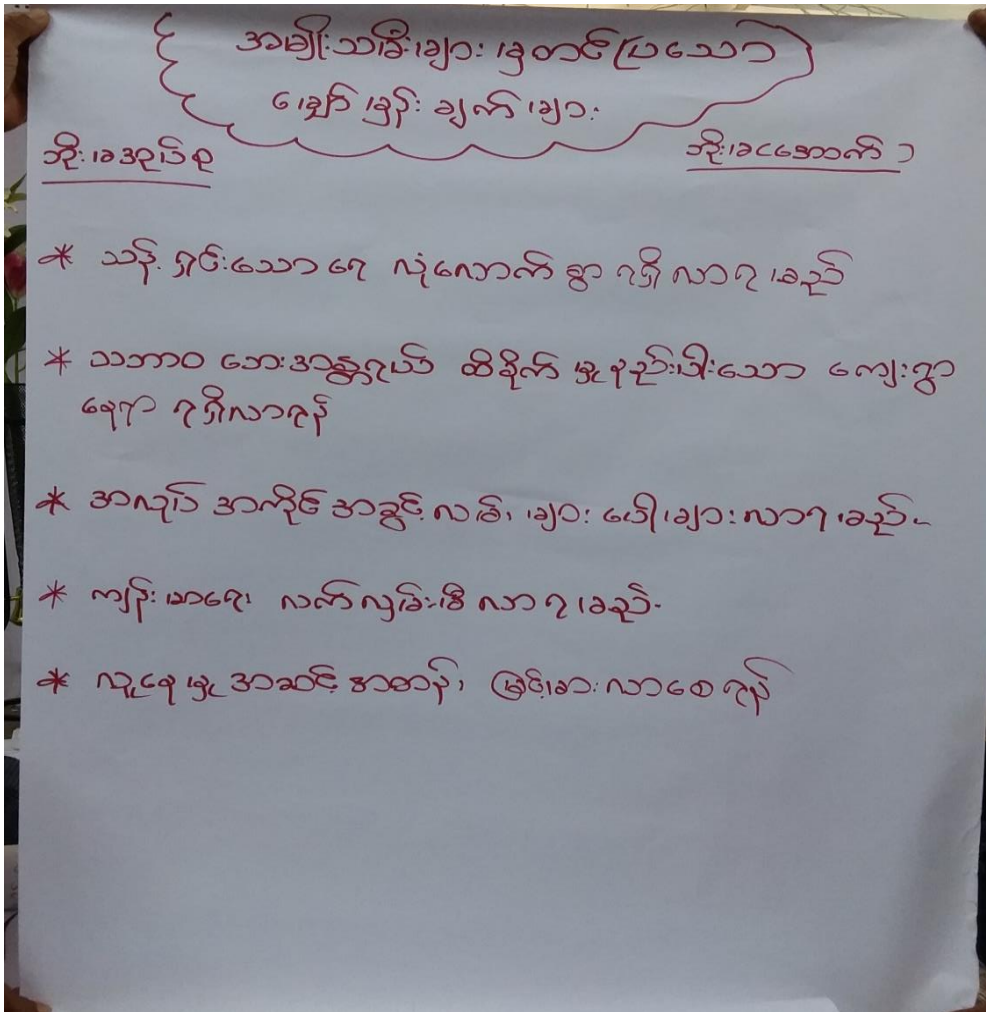 အမျိုးသမီးများ မှတင်ပြသော
မျှော်မှန်းချက်များ
ဘိုးခအုပ်စု
ဘိုးခငအောက် ၁
* သန့်ရှင်းသော ရေ လုံလောက်စွာ ရရှိလာရမည်
* သဘာဝ ဘေးအန္တရာယ် ထိခိုက်မှု နည်းပါးသော ကျေးရွာ
နေရာ ရရှိလာရန်
* အလုပ် အကိုင် အခွင့်လမ်းများ ပေါများလာရမည်။
* ကျန်းမာရေး လက်လှမ်းမှီလာရမည်။
* လူနေမှု အဆင့်အတန်း မြင့်မားလာစေရန်